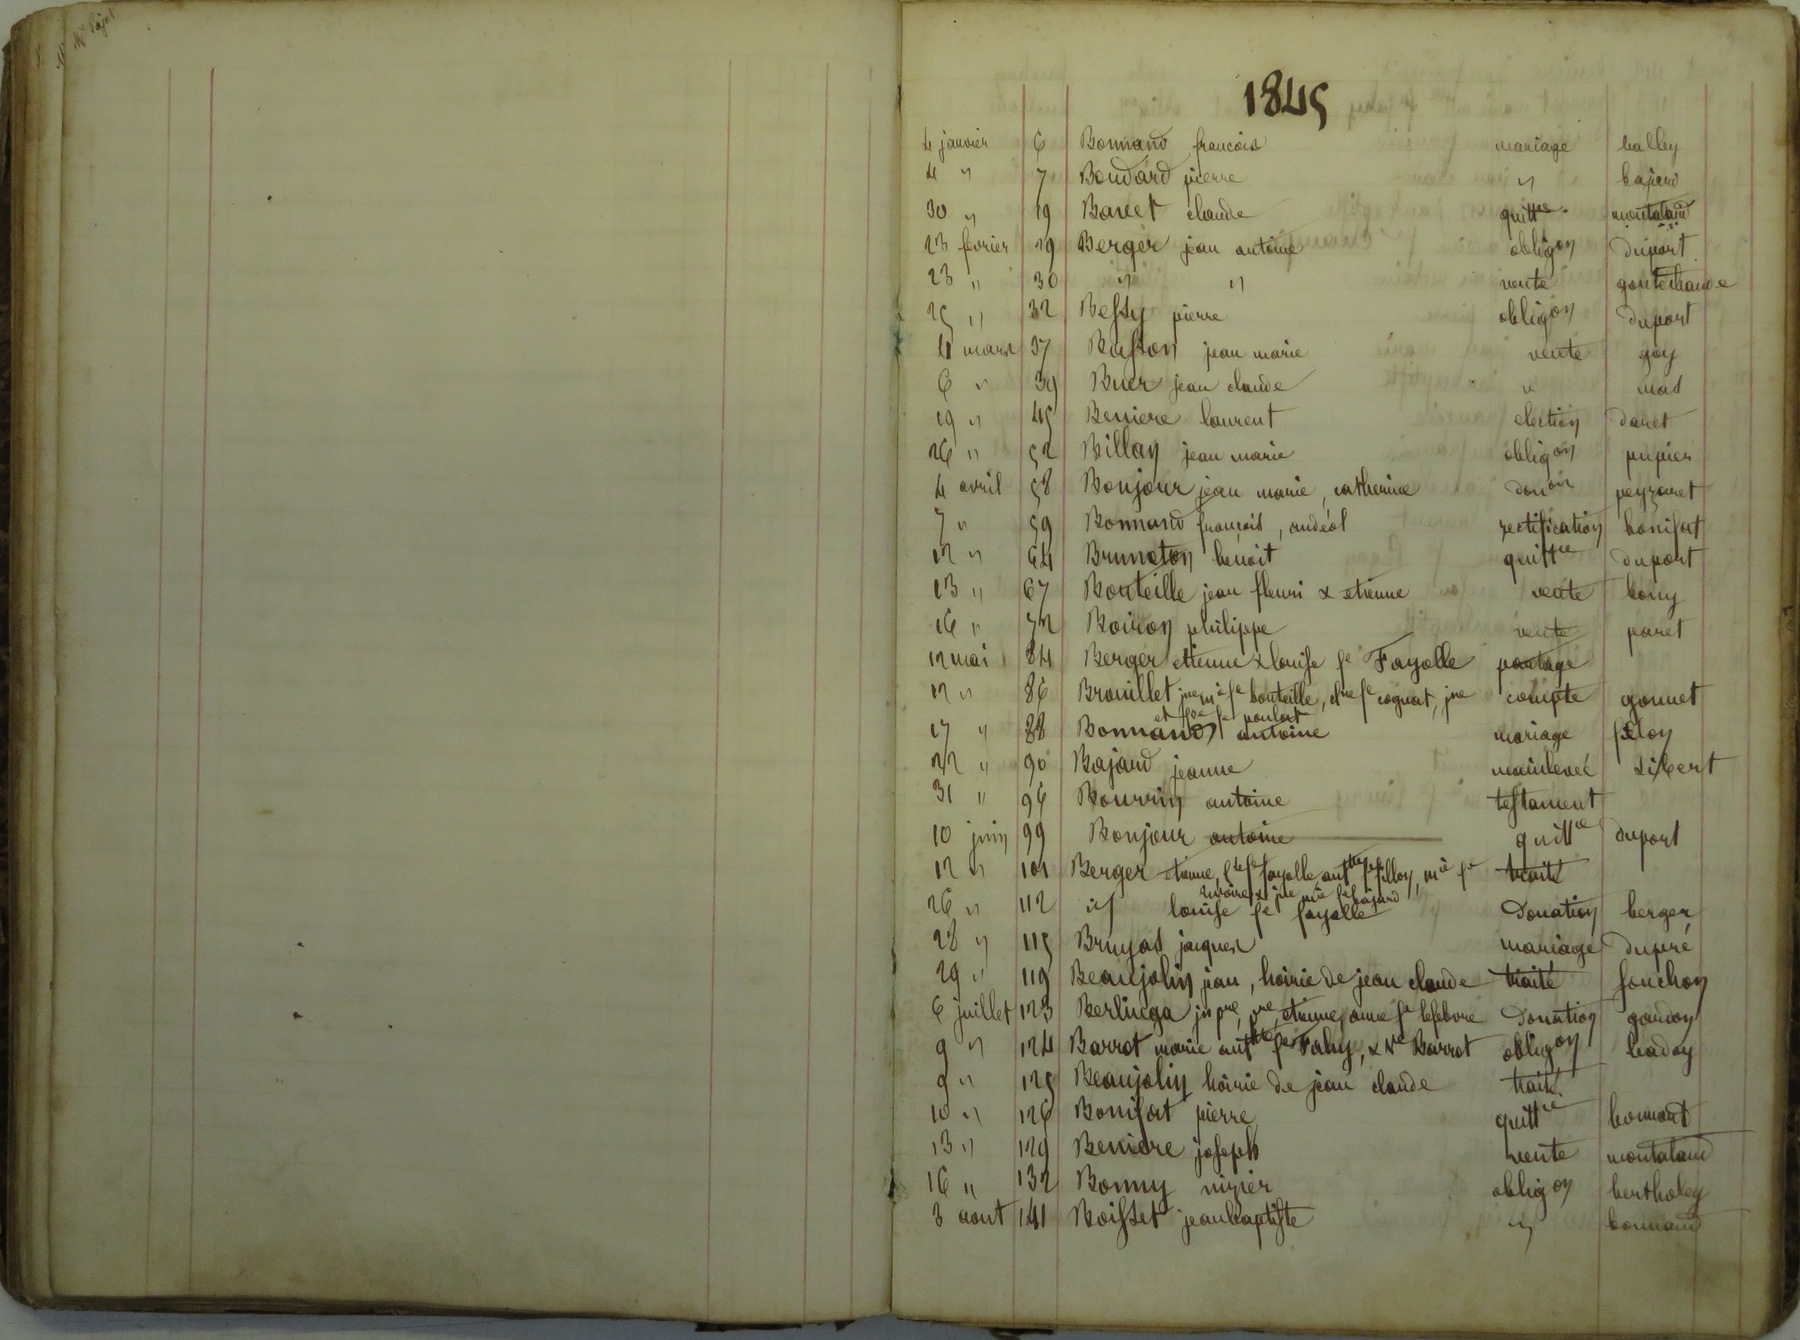 Me Pajot
1845
4 janvier 6 Bonnand francois mariage balley
4 " 7 Boudard pierre " bajard
30 " 19 Baret claude quittce montaland
23 fevrier 29 Berger jean antoine obligon duport
23 " 30 " " vente
25 " 32 Bessy pierre obligon duport
4 mars 37 Basson jean marie vente goy
6 " 39 Buer jean claude " mas
19 " 45 Beniere laurent election daret
26 " 52 Billay jean marie obligon pupier
4 avril 58 Bonjour jean marie, catherine donon peyzaret
7 " 59 Bonnand françois, andéol rectification bonifat
12 " 64 Brunoton benoit quittce duport
13 " 67 Bouteille jean fleuri & etienne vente bony
16 " 72 Boiron philippe vente paret
12 mai 84 Berger etienne & louise fe Fayolle partage
12 " 86 Brouillet jne mie fe bouteille, fe cognat, jne compte gonnet
et fe poulat
17 " 88 Bonnand antoine mariage
22 " 90 Bajard jeanne mainlevée sibert
31 " 96 Bourrin antoine testament
10 juin 99 Bonjour antoine quittce duport
12 " 101 Berger etienne, fe fayolle fe filloy, mie fe traité
& jne mie fe bajard
26 " 112 id louise fe fayolle donation berger
28 " 115 Bruyas jacques mariage dupré
29 " 119 Beaujolin jean, hoirie de jean claude traité fonchon
6 juillet 123 Berlinga jn pre, etienne, anne fe lefebvre donation gardon
9 " 124 Barrot marie antte fe Fahy, & Ve Barrot obligon badoy
9 " 125 Beaujolin hoirie de jean claude traité
10 " 126 Bonifat pierre quittce bonnard
13 " 129 Beniere joseph vente montaland
16 " 132 Bonny nizier obligon bertholey
3 aout 141 Boisset jean baptiste " bonnand